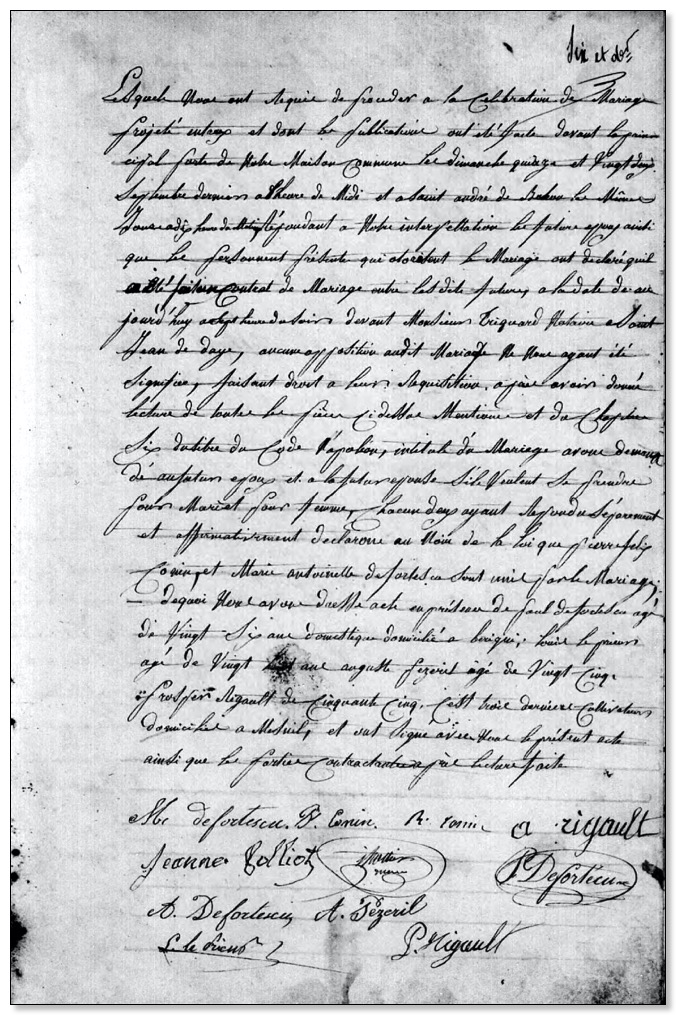 Six et dor
Lesquels Nous ont Requis de proceder a la Celebration du Mariage
projeté entreux et dont les publications ont été faite devant la prin
cipal porte de Notre Maison Commune les dimanche quinze et Vingt deux
Septembre dernier a heure de Midi et a Saint andré de Bohon les Même
Jours a dix heures du Matin, Répondant a Notre interpellation les future epoux ainsi
que les personnes presente qui otorisent le Mariage ont declaré quil
a été fait un Contrat de Mariage entre lesdits futurs, a la date de au
jourd'huy a sept heure du Soir devant Monsieur Notaire a Saint
Jean de daye, aucune opposition audit Mariage Ne Nous ayant été
Signifiée, faisant droit a leur Requisition, apres avoir donné
lecture de toutes les pieces Cidessus Mentionnée et du Chapitre
Six du titre du Code Napoléon, intitulé du Mariage avons demen
dé au futur epoux et a la future epouse Sils Veulent Se prendre
pour Mari et pour femme, Chacun deux ayant Repondu Séparement
et affirmativement declarons au Nom de la loi que pierre felix
Conin, et Marie antoinette defortescu Sont unis par le Mariage,
- dequoi Nous avons dressé acte en présence de paul defortescu agé
de Vingt Six ans domestique domicilié a , louis le prieur
agé de Vingt ans auguste fezeril agé de Vingt Cinq
prosper Rigault de Cinquante Cinq, C'est trois derniers Cultivateurs
domicilié a Mesnil, et ont Signé avec Nous le présent acte
ainsi que les parties Contractante apres lecture faite
Mc defortescu. P. Conin. R. Conin A rigault
Jeanne Folliot P. Defortescu
A. Defortescu A. Fézeril
L. le Prieur P. Rigault